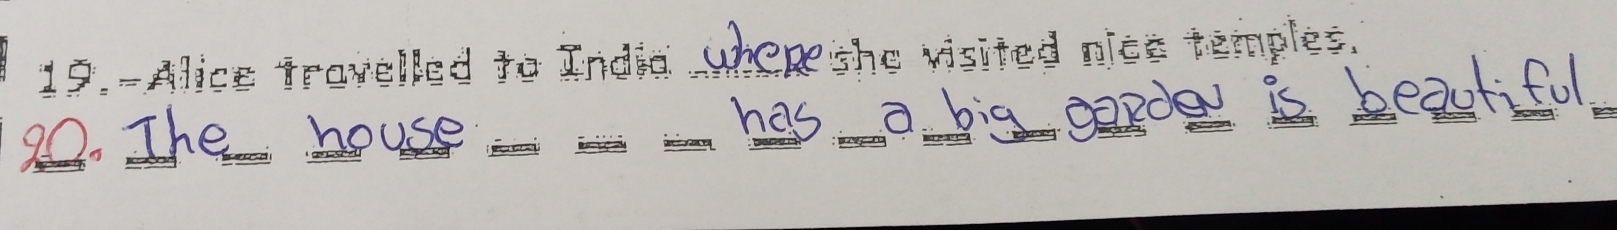 19.-Alice travelled to India where she visited nice temples.
20. The house _ _ _ has a big garden is beautiful